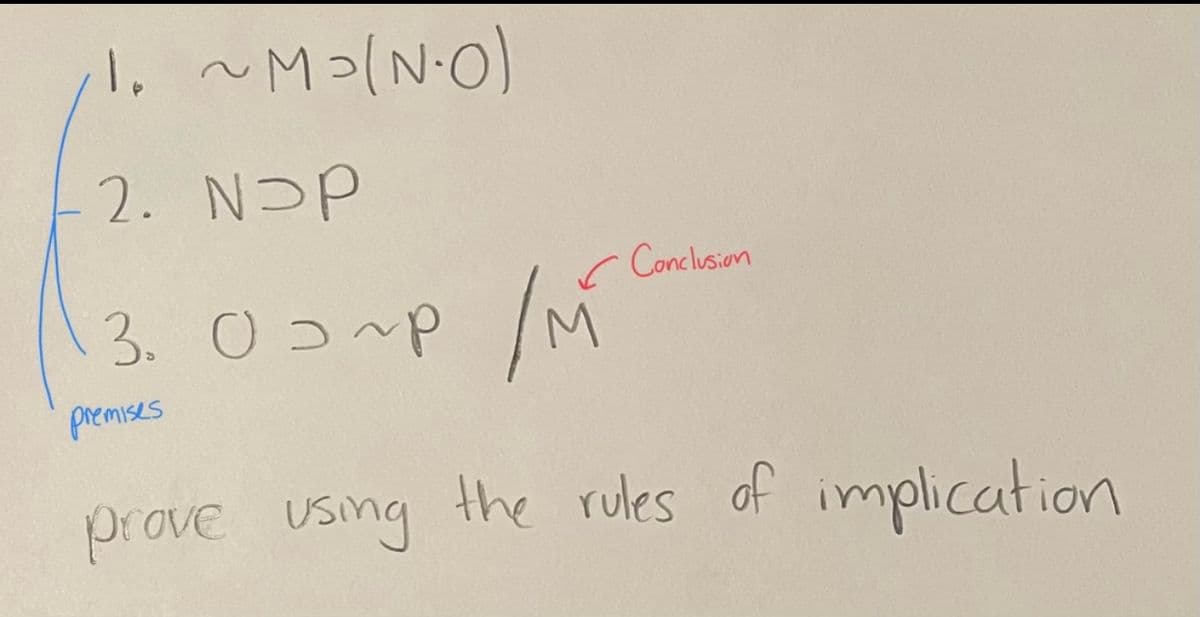 1. ~M⊃(N·O)
2. N⊃P
Conclusion
3. O⊃~P /M
premises
prove using the rules of implication